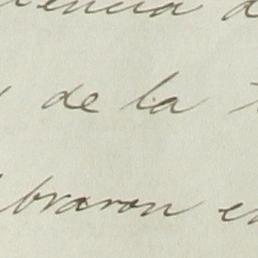 dencia d
de la
braron en